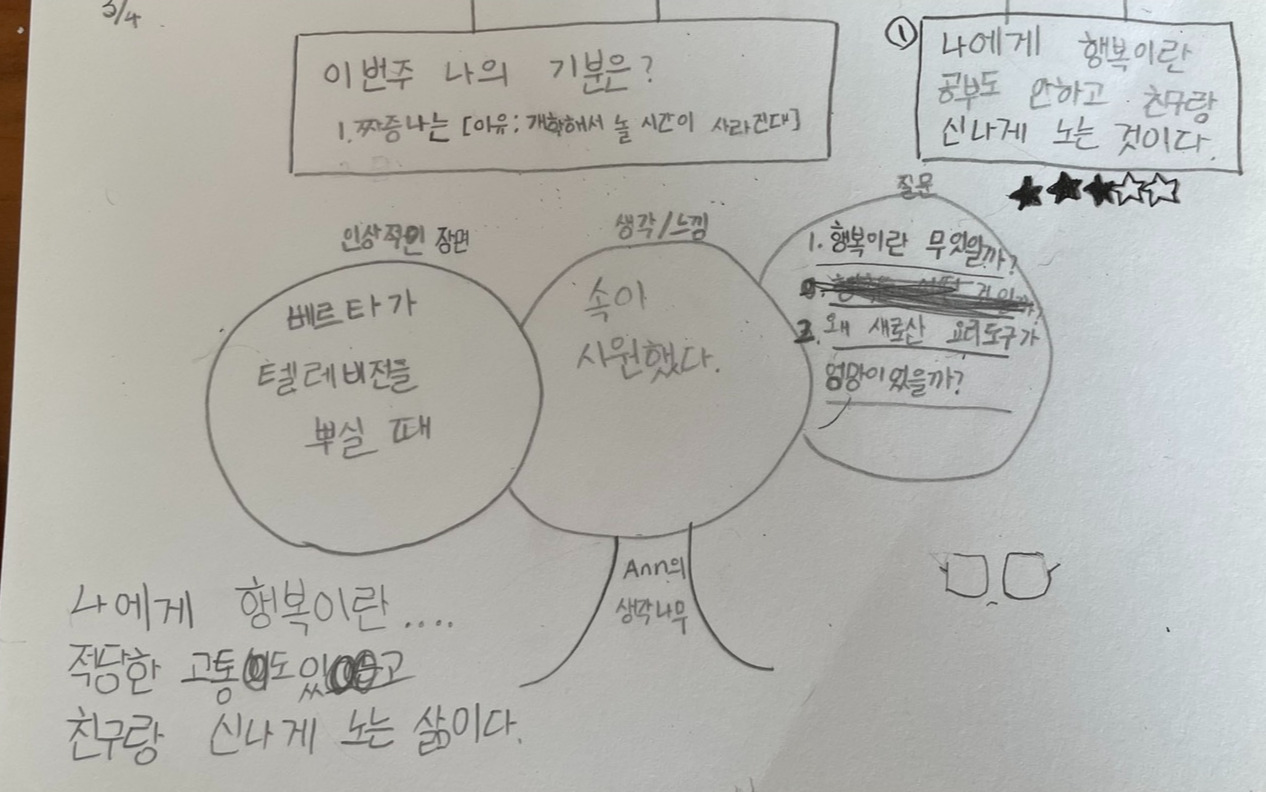 3/4
이번주 나의 기분은?
1. 짜증나는 [이유; 개학해서 놀 시간이 사라진대]
① 나에게 행복이란
공부도 안하고 친구랑
신나게 노는 것이다.
★★★☆☆
인상적인 장면
베르타가
텔레비전을
뿌실 때
생각/느낌
속이
시원했다.
질문
1. 행복이란 무엇일까?
2. 왜 새로산 요리도구가
엉망이 있을까?
Ann의
생각나무
나에게 행복이란....
적당한 고통도 있고
친구랑 신나게 노는 삶이다.